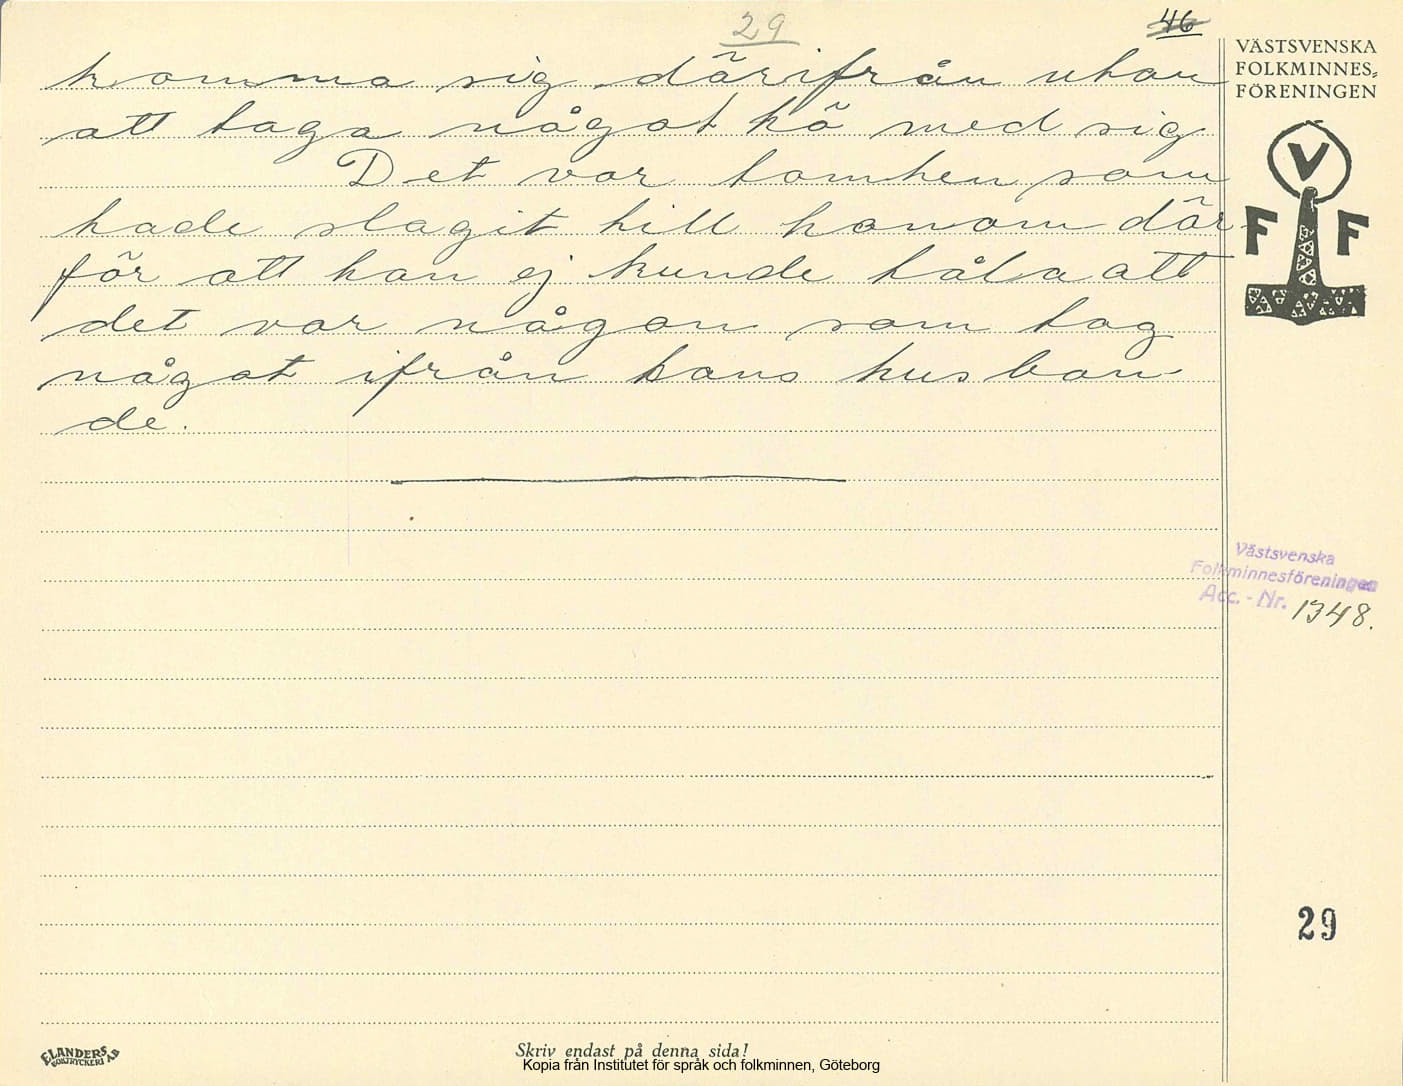 29
46
komma sig därifrån utan
att taga något hö med sig
Det var tomten som
hade slagit till honom där-
för att han ej kunde tåla att
det var någon som tog
något ifrån hans husbon-
de.
VÄSTSVENSKA
FOLKMINNES-
FÖRENINGEN
V
F F
Västsvenska
Folkminnesföreningen
Acc.-Nr. 1348.
29
ELANDERS
BOKTRYCKERI AB
Skriv endast på denna sida!
Kopia från Institutet för språk och folkminnen, Göteborg